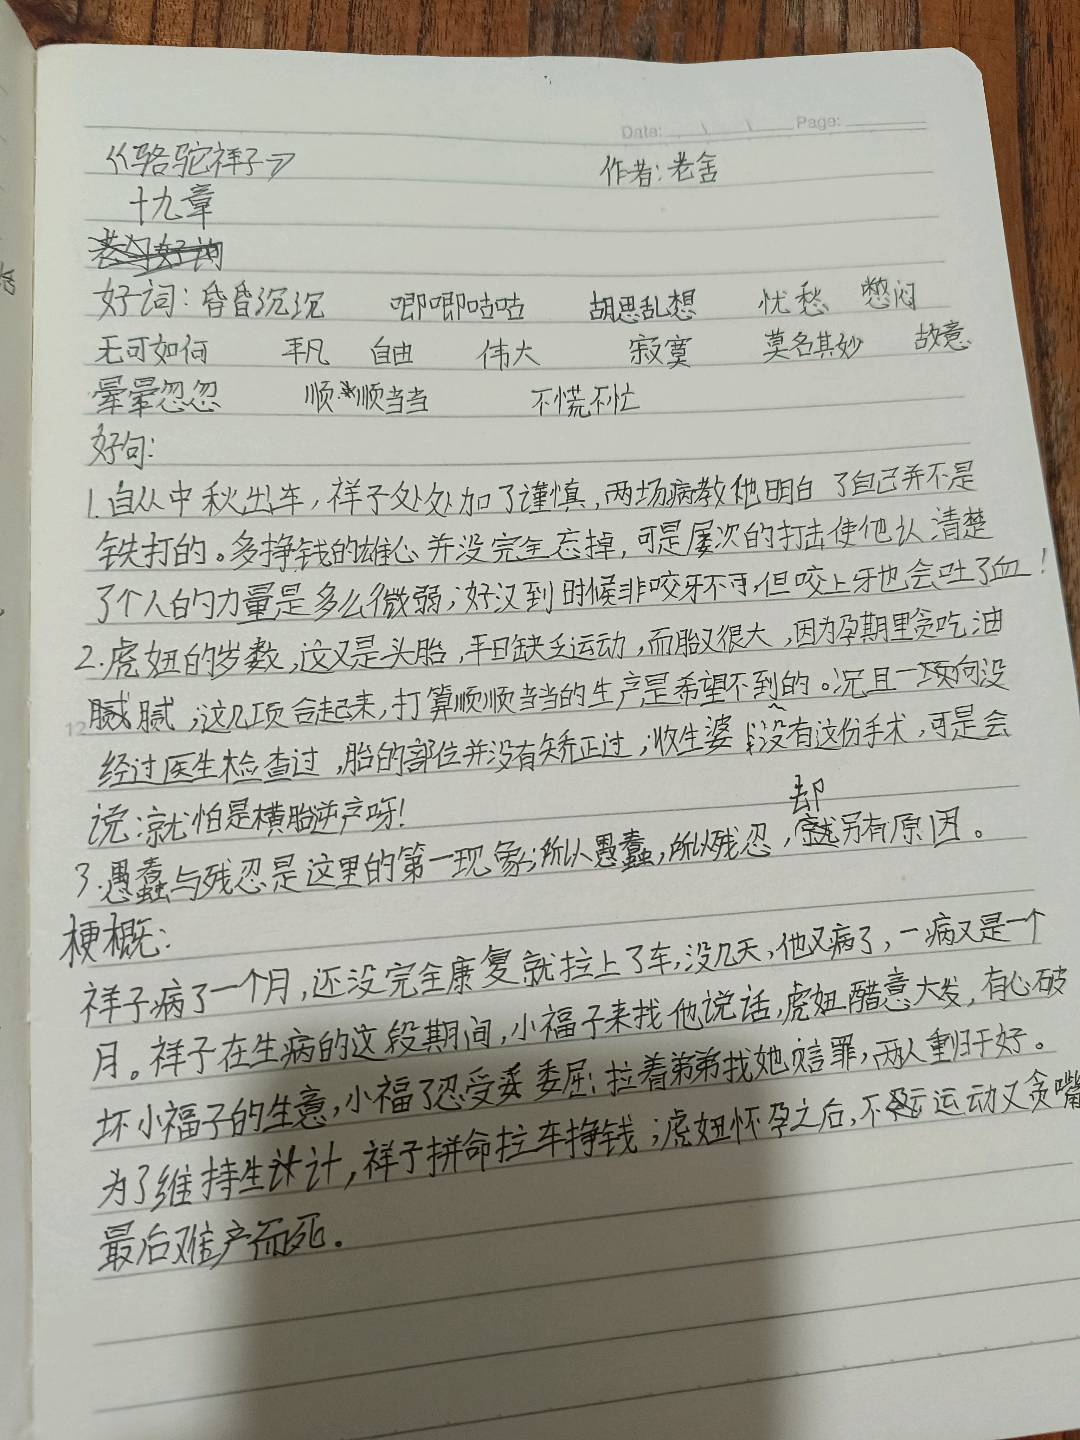 Date: Page:
《骆驼祥子》 作者:老舍
十九章
好词:昏昏沉沉 唧唧咕咕 胡思乱想 忧愁 憋闷
无可如何 平凡 自由 伟大 寂寞 莫名其妙 故意
晕晕忽忽 顺顺当当 不慌不忙
好句:
1.自从中秋出车,祥子处处加了谨慎,两场病教他明白了自己并不是
铁打的。多挣钱的雄心并没完全忘掉,可是屡次的打击使他认清楚
了个人的力量是多么微弱;好汉到时候非咬牙不可,但咬上牙也会吐了血!
2.虎妞的岁数,这又是头胎,平日缺乏运动,而胎又很大,因为孕期里贪吃油
腻腻,这几项合起来,打算顺顺当当的生产是希望不到的。况且一项向没
经过医生检查过,胎的部位并没有矫正过;收生婆没有这份手术,可是会
说:就怕是横胎逆产呀!
3.愚蠢与残忍是这里的第一现象;所以愚蠢,所以残忍,却另有原因。
梗概:
祥子病了一个月,还没完全康复就拉上了车,没几天,他又病了,一病又是一个
月。祥子在生病的这段期间,小福子来找他说话,虎妞醋意大发,有心破
坏小福子的生意,小福了忍受委屈;拉着弟弟找她赔罪,两人重归于好。
为了维持生计,祥子拼命拉车挣钱;虎妞怀孕之后,不运动又贪嘴
最后难产而死.